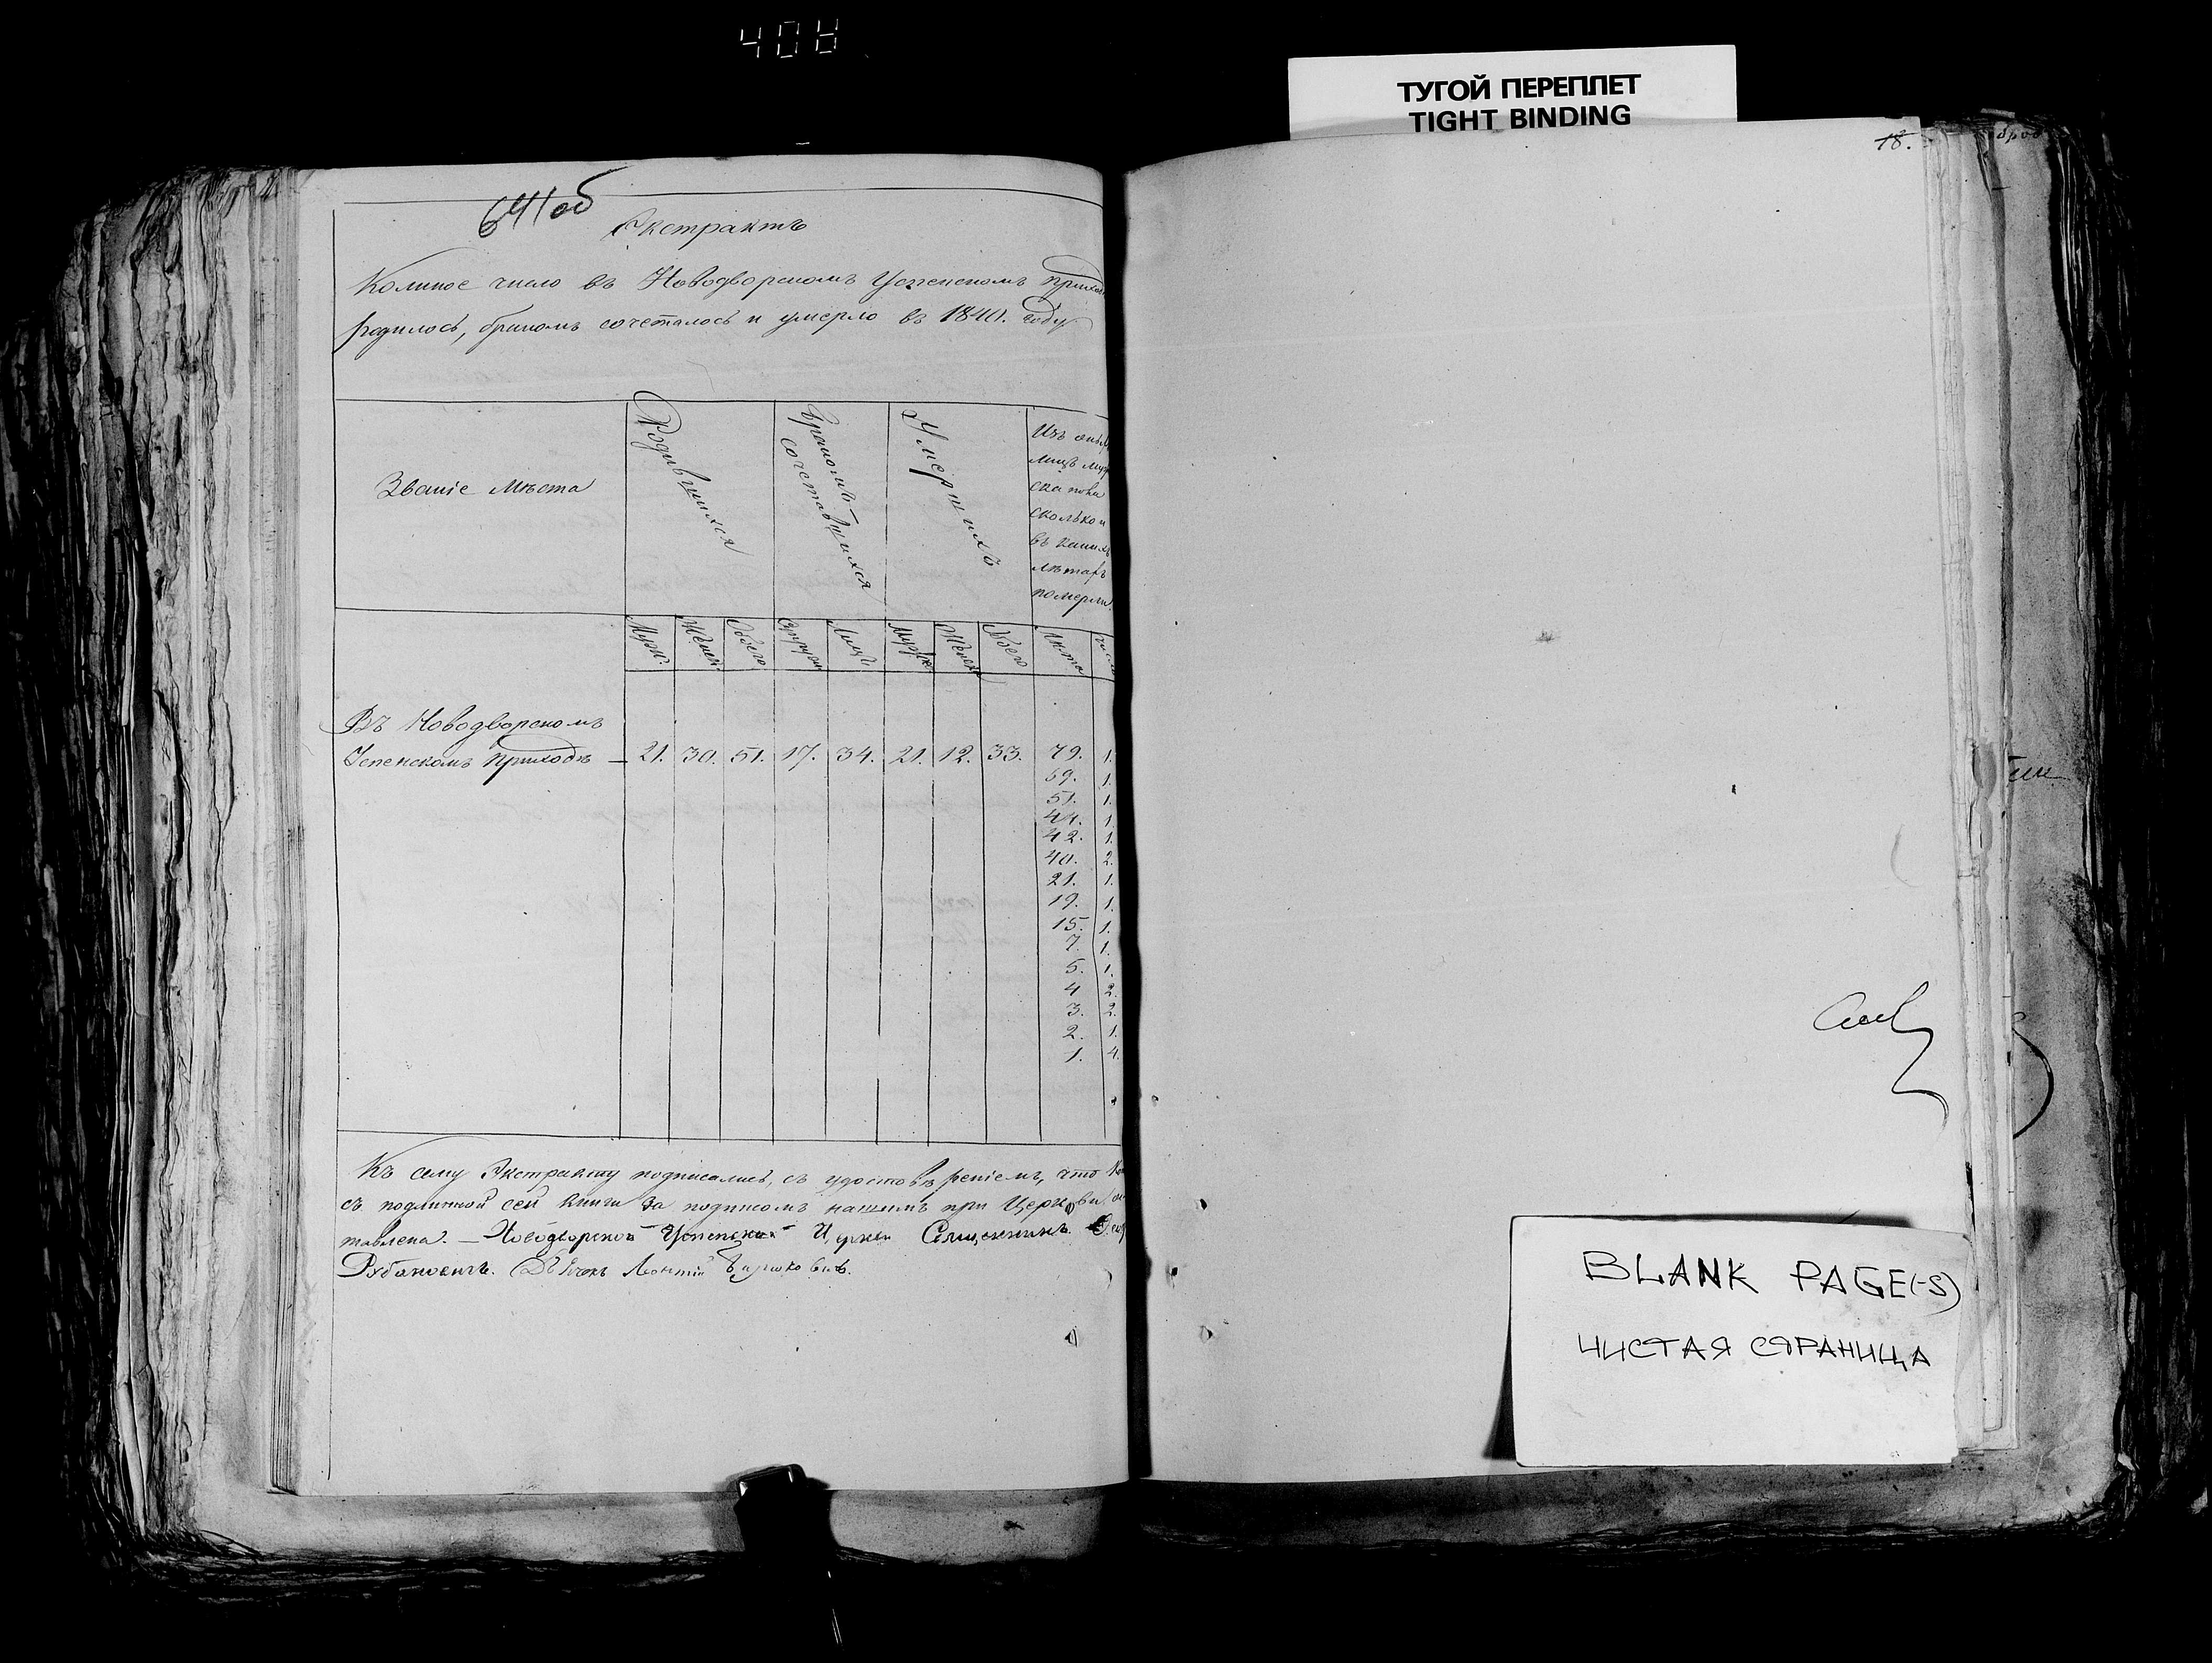 408
ТУГОЙ ПЕРЕПЛЕТ
TIGHT BINDING
18.
641об
Экстрактъ
Коликое число въ Новодворскомъ Успенскомъ
родилось, бракомъ сочеталось и умерло въ 1840. году
Званіе Мѣста
Родившихся
Бракомъ сочетавшихся
Умершихъ
Изъ
лицъ
ска пола
сколько и
въ какихъ
лѣтахъ
померли.
Муж. Женск. Обоего Супруж. Лицъ. Муж. Женск. Обоего Лѣта число
Въ Новодворскомъ
Успенскомъ Приходѣ — 21. 30. 51. 17. 34. 21. 12. 33. 79. 1.
69. 1.
51. 1.
44. 1.
42. 1.
40. 2.
21. 1.
19. 1.
15. 1.
7. 1.
5. 1.
4 2.
3. 2.
2. 1.
1. 4.
Къ сему Экстракту подписались, съ удостовѣреніемъ, что
съ подлинной сей книги за подписомъ нашимъ при Церкви
тавлена. — Новодворской Успенской Церкви Священникъ
Дьячокъ Леонтій
BLANK PAGE(-S)
ЧИСТАЯ СТРАНИЦА